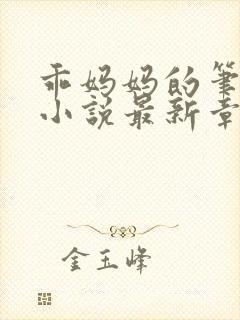 乖妈妈的笔
小说最新章
金玉峰